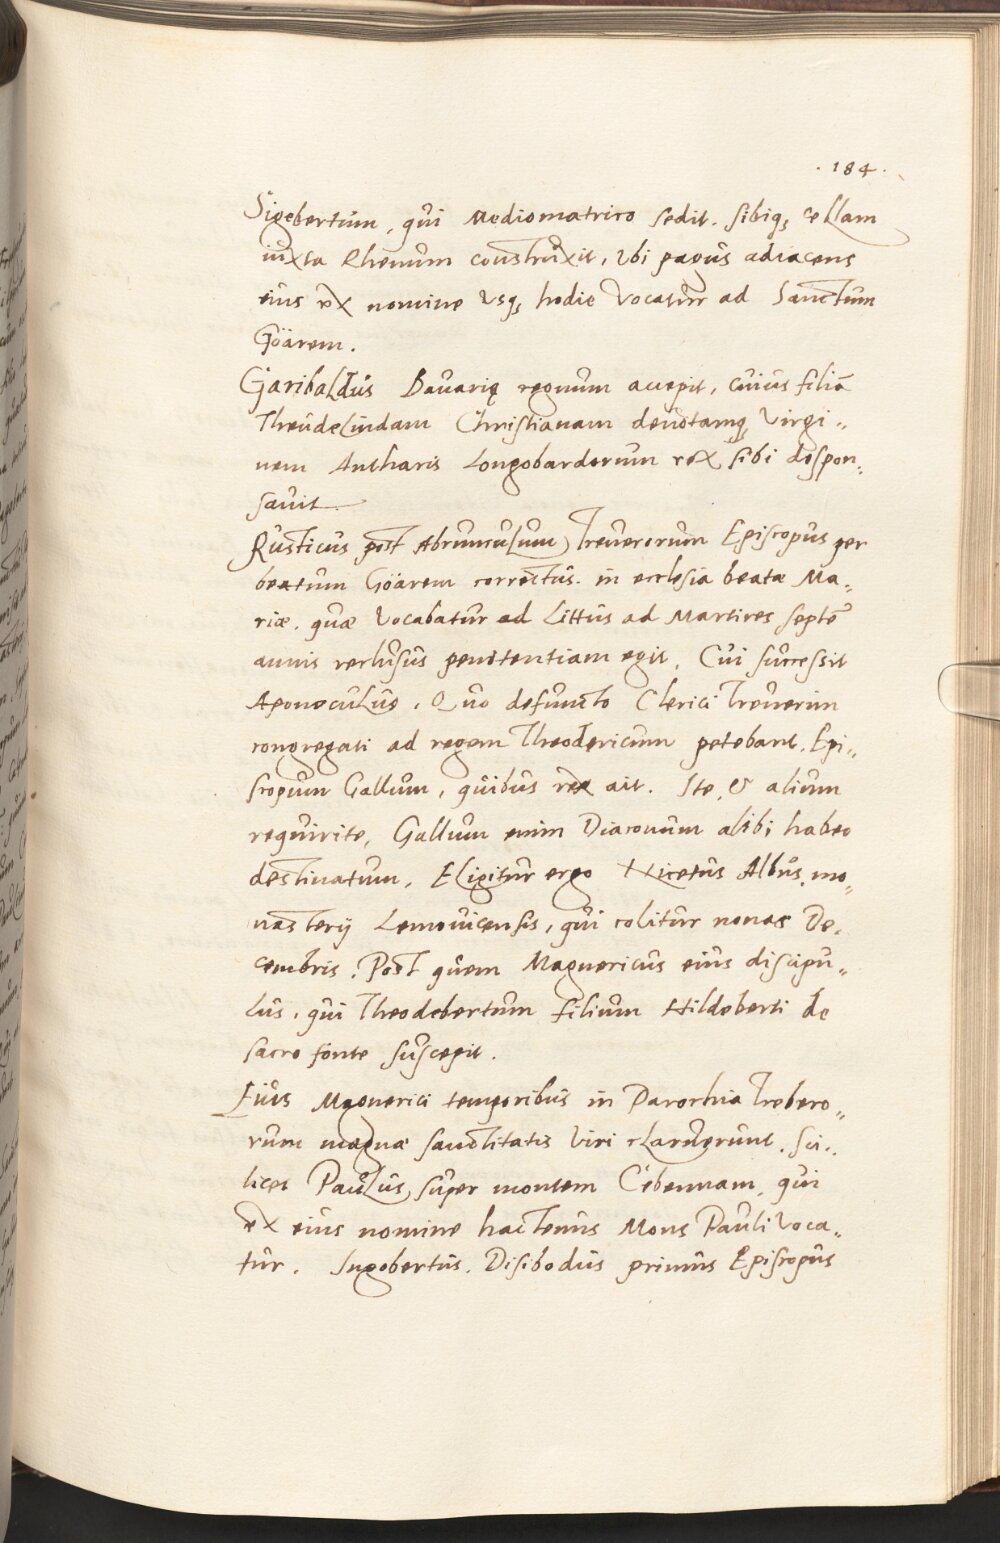 . 184 .
Sigebertům, qůi Mediomatrico sedit. sibiq; cellam
iůxta Rhenům constrůxit, Vbi pagůs adiacens
eiůs ex nomine Vsq; hodie Vocatůr ad Sanctům
Göärem.
Garibaldůs Baůarię regnům accepit, cůiůs filiā
Theůdelindam Christianam deůotamq; Virgi„
nem Antharis Longobardorům rex sibi despon„
saůit
Růsticůs post Abrůnculům Treůerorům Episcopůs per
beatům Göärem correctůs. in ecclesia beatæ Ma„
riæ. quæ Vocabatůr ad Littůs ad Martires septē
annis reclůsůs penitentiam egit. Cůi sůccessit
Aponocůlůs. Qůo defůncto Clerici Treůerim
congregati ad regem Theodericům petebant. Epi„
scopům Gallům, qůibůs rex ait. Ite, & aliům
reqůirite, Gallům enim Diaconům alibi habeo
destinatům. Eligitůr ergo Nicetůs Albůs, mo„
nasterij Lemoůicensis, qůi colitůr nonas De„
cembris. Post qůem Magnericůs eiůs discipů„
lůs. qůi Theodebertům filiům Hildeberti de
sacro fonte sůscepit.
Eiůs Magnerici temporibůs in Parochia Trebero„
rům magnæ sanctitatis Viri clarůerůnt. sci„
licet Paůlůs sůper montem Cebennam, qůi
ex eiůs nomine hactenůs Mons Paůli Voca„
tůr. Ingobertůs. Disibodůs primůs Episcopůs